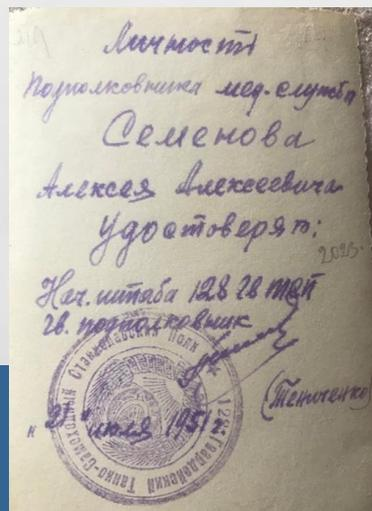 Личности
Подполковника мед. службы
Семенова
Алексея Алексеевича
Удостоверяю:
Нач. штаба 128 гв тсп
гв. подполковник
(Тенченко)
"21" июля 1951 г.
128 Гвардейский Танко-Самоходный Станиславский Полк